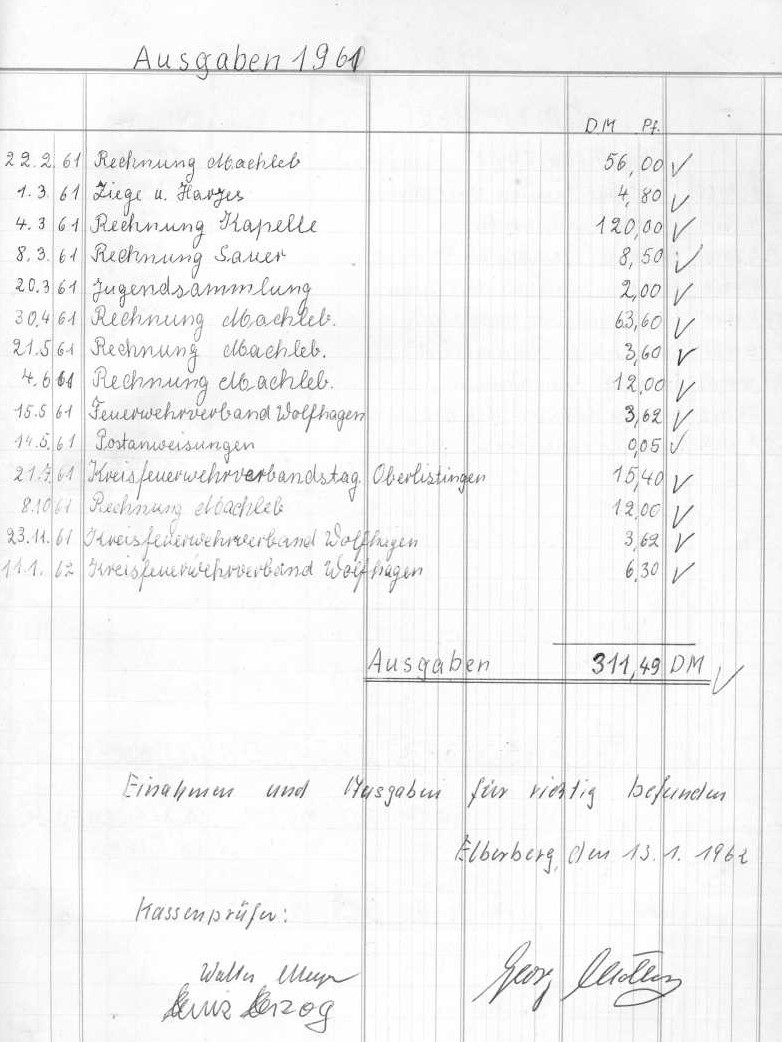 Ausgaben 1961
DM Pf.
22.2.61 Rechnung Machleb 56,00 ✓
1.3.61 Ziege u. Harzes 4,80 ✓
4.3 61 Rechnung Kapelle 120,00 ✓
8.3.61 Rechnung Sauer 8,50 ✓
20.3 61 Jugendsammlung 2,00 ✓
30.4 61 Rechnung Machleb. 63,60 ✓
21.5 61 Rechnung Machleb. 3,60 ✓
4.6 61 Rechnung Machleb. 12,00 ✓
15.5 61 Feuerwehrverband Wolfhagen 3,62 ✓
14.5.61 Postanweisungen 0,05 ✓
21.7.61 Kreisfeuerwehrverbandstag Oberlistingen 15,40 ✓
8.10 61 Rechnung Machleb 12,00 ✓
23.11.61 Kreisfeuerwehrverband Wolfhagen 3,62 ✓
11.1.62 Kreisfeuerwehrverband Wolfhagen 6,30 ✓
Ausgaben 311,49 DM ✓
Einahmen und Ausgaben für richtig befunden
Elberberg, den 13.1.1962
Kassenprüfer:
Walter Meyer Georg
Heinz Herzog